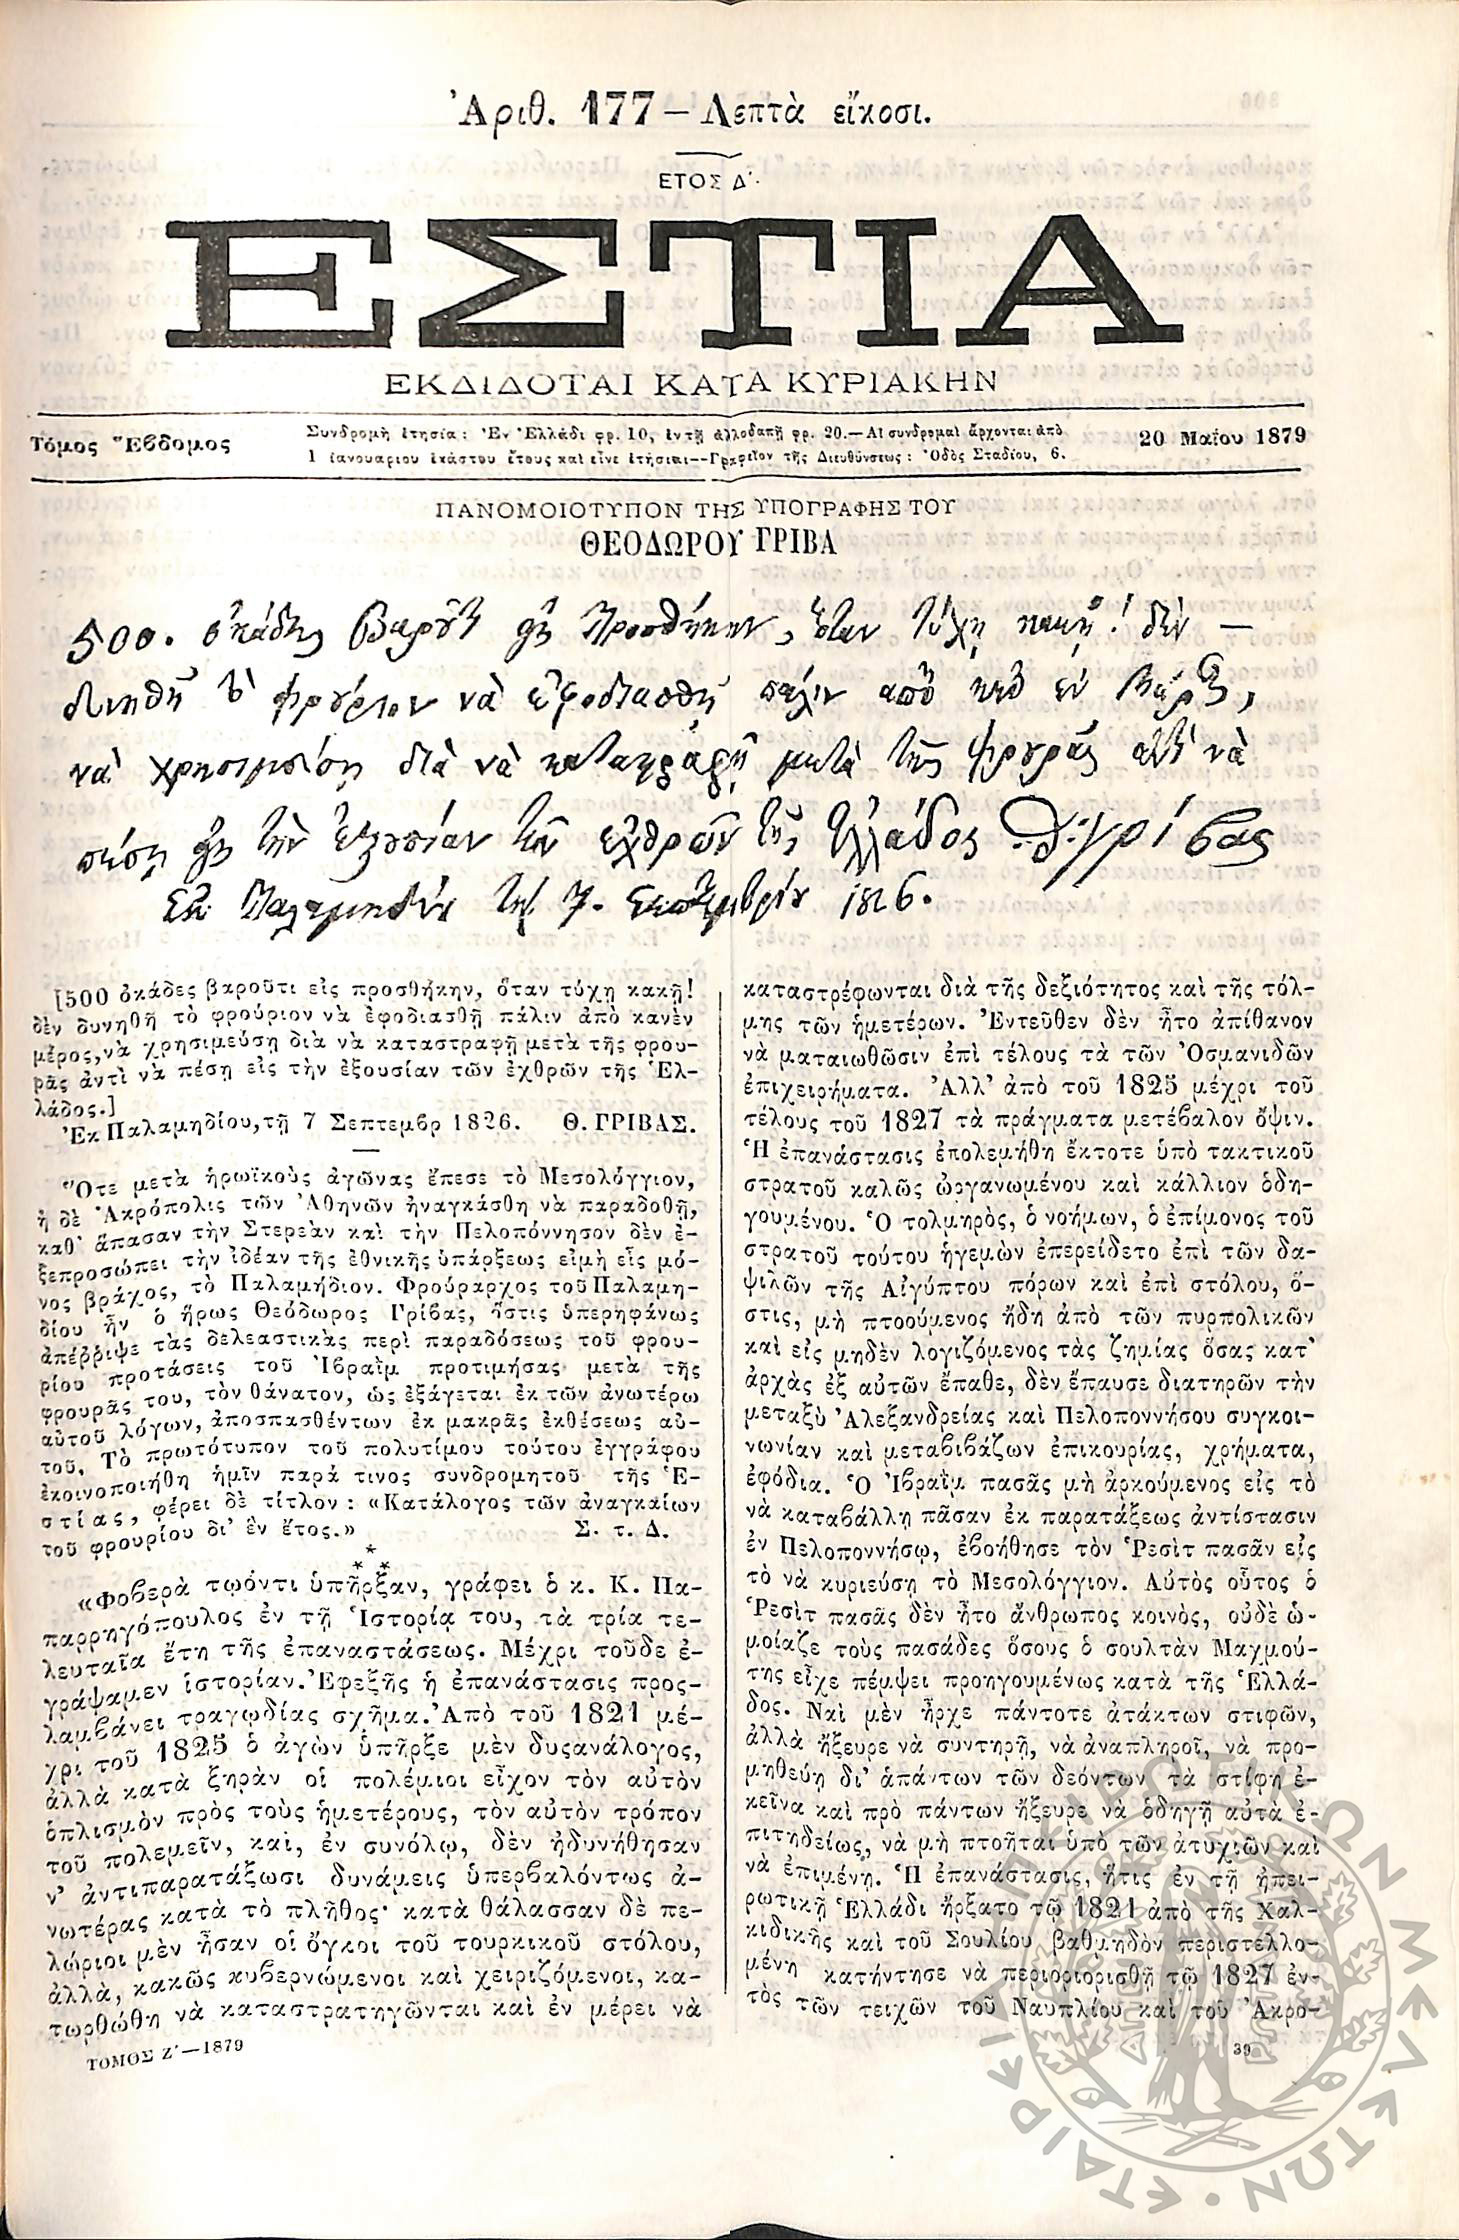 Ἀριθ. 177 — Λεπτὰ εἴκοσι.
ΕΤΟΣ Δ΄.
ΕΣΤΙΑ
ΕΚΔΙΔΟΤΑΙ ΚΑΤΑ ΚΥΡΙΑΚΗΝ
Τόμος Ἕβδομος
Συνδρομὴ ἐτησία: Ἐν Ἑλλάδι φρ. 10, ἐν τῇ ἀλλοδαπῇ φρ. 20.—Αἱ συνδρομαὶ ἄρχονται ἀπὸ
1 ἰανουαρίου ἑκάστου ἔτους καὶ εἶνε ἐτήσιαι—Γραφεῖον τῆς Διευθύνσεως: Ὁδὸς Σταδίου, 6.
20 Μαΐου 1879
ΠΑΝΟΜΟΙΟΤΥΠΟΝ ΤΗΣ ΥΠΟΓΡΑΦΗΣ ΤΟΥ
ΘΕΟΔΩΡΟΥ ΓΡΙΒΑ
500. ὀκάδες βαρούτι εἰς προσθήκην, ὅταν τύχῃ κακῇ! δὲν
δυνηθῇ τὸ φρούριον νὰ ἐφοδιασθῇ πάλιν ἀπὸ
νὰ χρησιμεύσῃ διὰ νὰ μετὰ τῆς φρουρᾶς ἀντὶ νὰ
πέσῃ εἰς τὴν ἐξουσίαν τῶν ἐχθρῶν τῆς Ἑλλάδος Θ. γρίβας
Ἐκ Παλαμηδίου τῇ 7. Σεπτεμβρίου 1826.
[500 ὀκάδες βαροῦτι εἰς προσθήκην, ὅταν τύχῃ κακῇ!
δὲν δυνηθῇ τὸ φρούριον νὰ ἐφοδιασθῇ πάλιν ἀπὸ κανὲν
μέρος, νὰ χρησιμεύσῃ διὰ νὰ καταστραφῇ μετὰ τῆς φρου-
ρᾶς ἀντὶ νὰ πέσῃ εἰς τὴν ἐξουσίαν τῶν ἐχθρῶν τῆς Ἑλ-
λάδος.]
Ἐκ Παλαμηδίου, τῇ 7 Σεπτεμβρ 1826. Θ. ΓΡΙΒΑΣ.
Ὅτε μετὰ ἡρωϊκοὺς ἀγῶνας ἔπεσε τὸ Μεσολόγγιον,
ἡ δὲ Ἀκρόπολις τῶν Ἀθηνῶν ἠναγκάσθη νὰ παραδοθῇ,
καθ᾽ ἅπασαν τὴν Στερεὰν καὶ τὴν Πελοπόννησον δὲν ἐ-
ξεπροσώπει τὴν ἰδέαν τῆς ἐθνικῆς ὑπάρξεως εἰμὴ εἷς μό-
νος βράχος, τὸ Παλαμήδιον. Φρούραρχος τοῦ Παλαμη-
δίου ἦν ὁ ἥρως Θεόδωρος Γρίβας, ὅστις ὑπερηφάνως
ἀπέῤῥιψε τὰς δελεαστικὰς περὶ παραδόσεως τοῦ φρου-
ρίου προτάσεις τοῦ Ἰβραῒμ προτιμήσας μετὰ τῆς
φρουρᾶς του, τὸν θάνατον, ὡς ἐξάγεται ἐκ τῶν ἀνωτέρω
αὐτοῦ λόγων, ἀποσπασθέντων ἐκ μακρᾶς ἐκθέσεως αὐ-
τοῦ. Τὸ πρωτότυπον τοῦ πολυτίμου τούτου ἐγγράφου
ἐκοινοποιήθη ἡμῖν παρά τινος συνδρομητοῦ τῆς Ἑ-
στίας, φέρει δὲ τίτλον: «Κατάλογος τῶν ἀναγκαίων
τοῦ φρουρίου δι᾽ ἓν ἔτος.» Σ. τ. Δ.
***
«Φοβερὰ τῳόντι ὑπῆρξαν, γράφει ὁ κ. Κ. Πα-
παρρηγόπουλος ἐν τῇ Ἱστορίᾳ του, τὰ τρία τε-
λευταῖα ἔτη τῆς ἐπαναστάσεως. Μέχρι τοῦδε ἐ-
γράψαμεν ἱστορίαν. Ἐφεξῆς ἡ ἐπανάστασις προς-
λαμβάνει τραγῳδίας σχῆμα. Ἀπὸ τοῦ 1821 μέ-
χρι τοῦ 1825 ὁ ἀγὼν ὑπῆρξε μὲν δυςανάλογος,
ἀλλὰ κατὰ ξηρὰν οἱ πολέμιοι εἶχον τὸν αὐτὸν
ὁπλισμὸν πρὸς τοὺς ἡμετέρους, τὸν αὐτὸν τρόπον
τοῦ πολεμεῖν, καὶ, ἐν συνόλῳ, δὲν ἠδυνήθησαν
ν᾽ ἀντιπαρατάξωσι δυνάμεις ὑπερβαλόντως ἀ-
νωτέρας κατὰ τὸ πλῆθος· κατὰ θάλασσαν δὲ πε-
λώριοι μὲν ἦσαν οἱ ὄγκοι τοῦ τουρκικοῦ στόλου,
ἀλλὰ, κακῶς κυβερνώμενοι καὶ χειριζόμενοι, κα-
τωρθώθη νὰ καταστρατηγῶνται καὶ ἐν μέρει νὰ
ΤΟΜΟΣ Ζ΄—1879
καταστρέφωνται διὰ τῆς δεξιότητος καὶ τῆς τόλ-
μης τῶν ἡμετέρων. Ἐντεῦθεν δὲν ἦτο ἀπίθανον
νὰ ματαιωθῶσιν ἐπὶ τέλους τὰ τῶν Ὀσμανιδῶν
ἐπιχειρήματα. Ἀλλ᾽ ἀπὸ τοῦ 1825 μέχρι τοῦ
τέλους τοῦ 1827 τὰ πράγματα μετέβαλον ὄψιν.
Ἡ ἐπανάστασις ἐπολεμήθη ἔκτοτε ὑπὸ τακτικοῦ
στρατοῦ καλῶς ὠργανωμένου καὶ κάλλιον ὁδη-
γουμένου. Ὁ τολμηρὸς, ὁ νοήμων, ὁ ἐπίμονος τοῦ
στρατοῦ τούτου ἡγεμὼν ἐπερείδετο ἐπὶ τῶν δα-
ψιλῶν τῆς Αἰγύπτου πόρων καὶ ἐπὶ στόλου, ὅ-
στις, μὴ πτοούμενος ἤδη ἀπὸ τῶν πυρπολικῶν
καὶ εἰς μηδὲν λογιζόμενος τὰς ζημίας ὅσας κατ᾽
ἀρχὰς ἐξ αὐτῶν ἔπαθε, δὲν ἔπαυσε διατηρῶν τὴν
μεταξὺ Ἀλεξανδρείας καὶ Πελοποννήσου συγκοι-
νωνίαν καὶ μεταβιβάζων ἐπικουρίας, χρήματα,
ἐφόδια. Ὁ Ἰβραῒμ πασᾶς μὴ ἀρκούμενος εἰς τὸ
νὰ καταβάλλῃ πᾶσαν ἐκ παρατάξεως ἀντίστασιν
ἐν Πελοποννήσῳ, ἐβοήθησε τὸν Ῥεσὶτ πασᾶν εἰς
τὸ νὰ κυριεύσῃ τὸ Μεσολόγγιον. Αὐτὸς οὗτος ὁ
Ῥεσὶτ πασᾶς δὲν ἦτο ἄνθρωπος κοινὸς, οὐδὲ ὡ-
μοίαζε τοὺς πασάδες ὅσους ὁ σουλτὰν Μαχμού-
της εἶχε πέμψει προηγουμένως κατὰ τῆς Ἑλλά-
δος. Ναὶ μὲν ἦρχε πάντοτε ἀτάκτων στιφῶν,
ἀλλὰ ἤξευρε νὰ συντηρῇ, νὰ ἀναπληροῖ, νὰ προ-
μηθεύῃ δι᾽ ἁπάντων τῶν δεόντων τὰ στίφη ἐ-
κεῖνα καὶ πρὸ πάντων ἤξευρε νὰ ὁδηγῇ αὐτὰ ἐ-
πιτηδείως, νὰ μὴ πτοῆται ὑπὸ τῶν ἀτυχιῶν καὶ
νὰ ἐπιμένῃ. Ἡ ἐπανάστασις, ἥτις ἐν τῇ ἠπει-
ρωτικῇ Ἑλλάδι ἤρξατο τῷ 1821 ἀπὸ τῆς Χαλ-
κιδικῆς καὶ τοῦ Σουλίου βαθμηδὸν περιστελλο-
μένη κατήντησε νὰ περιοριορισθῇ τῷ 1827 ἐν-
τὸς τῶν τειχῶν τοῦ Ναυπλίου καὶ τοῦ Ἀκρο-
39
ΕΤΑΙΡΕΙΑ ΗΠΕΙΡΩΤΙΚΩΝ ΜΕΛΕΤΩΝ